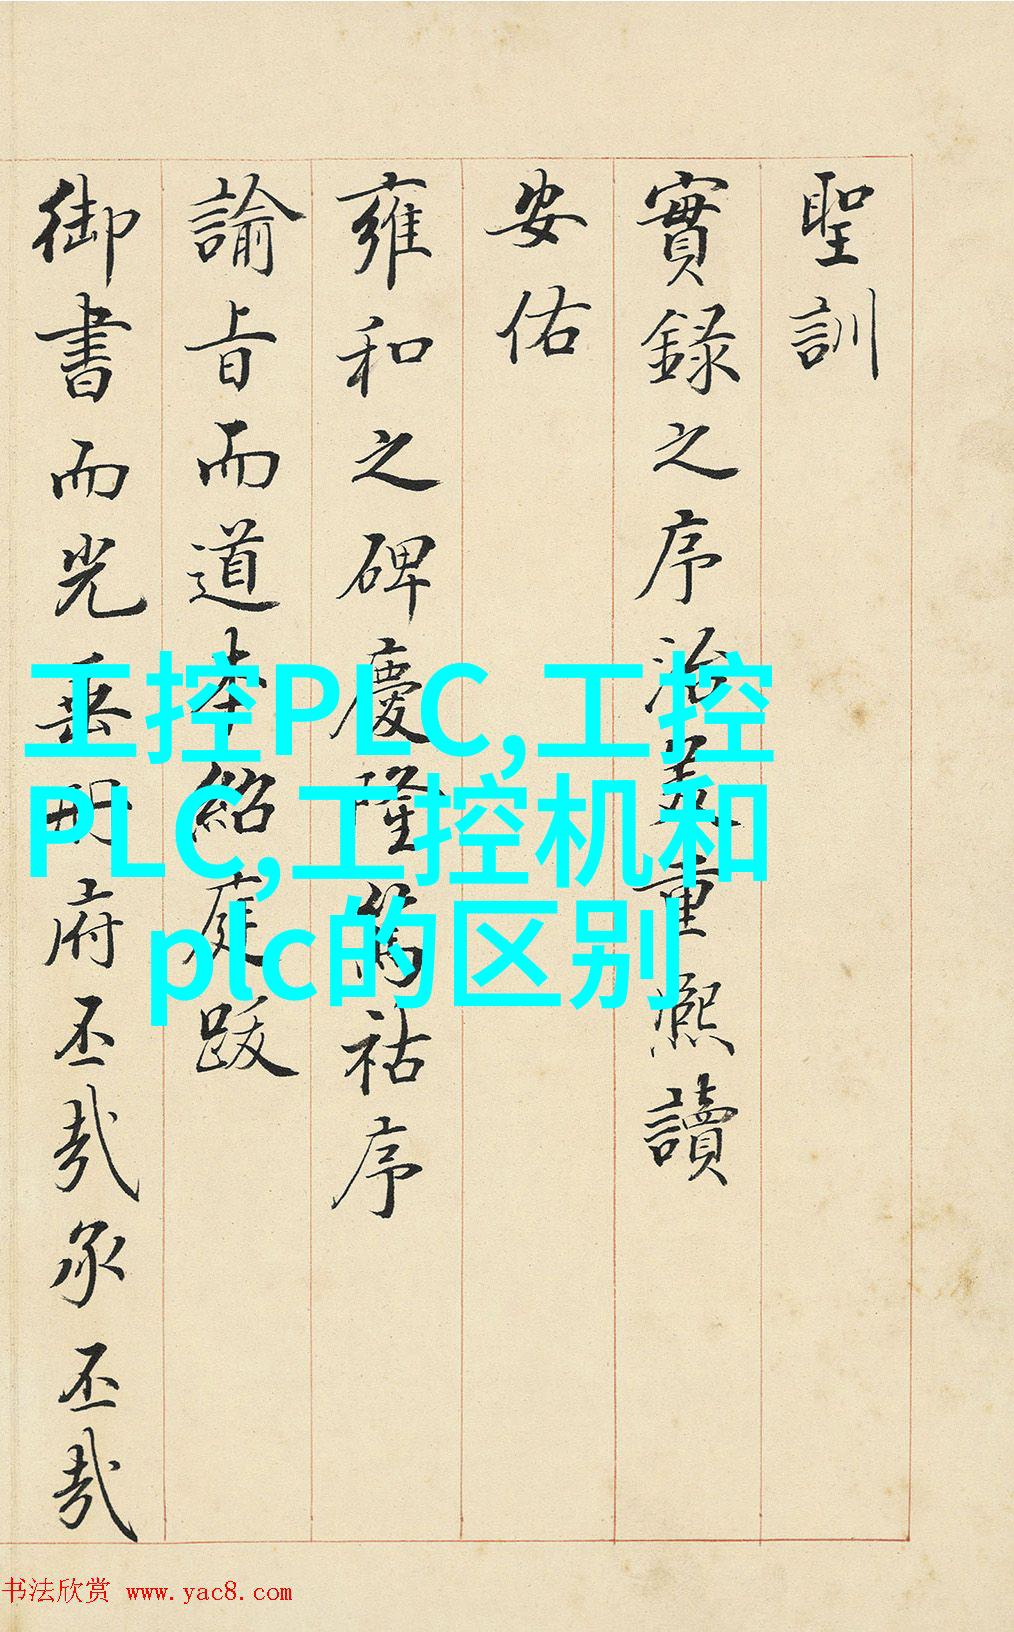 聖訓
實錄之序治美重熙讀
安佑
雍和之碑慶隆篤祜序
諭旨而道本紹庭跋
御書而光垂冊府丕哉承丕哉
工控PLC,工控
PLC,工控机和
plc的区别
书法欣赏 www.yac8.com